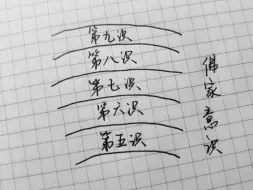 第九识
第八识
第七识
第六识
第五识
佛家意识